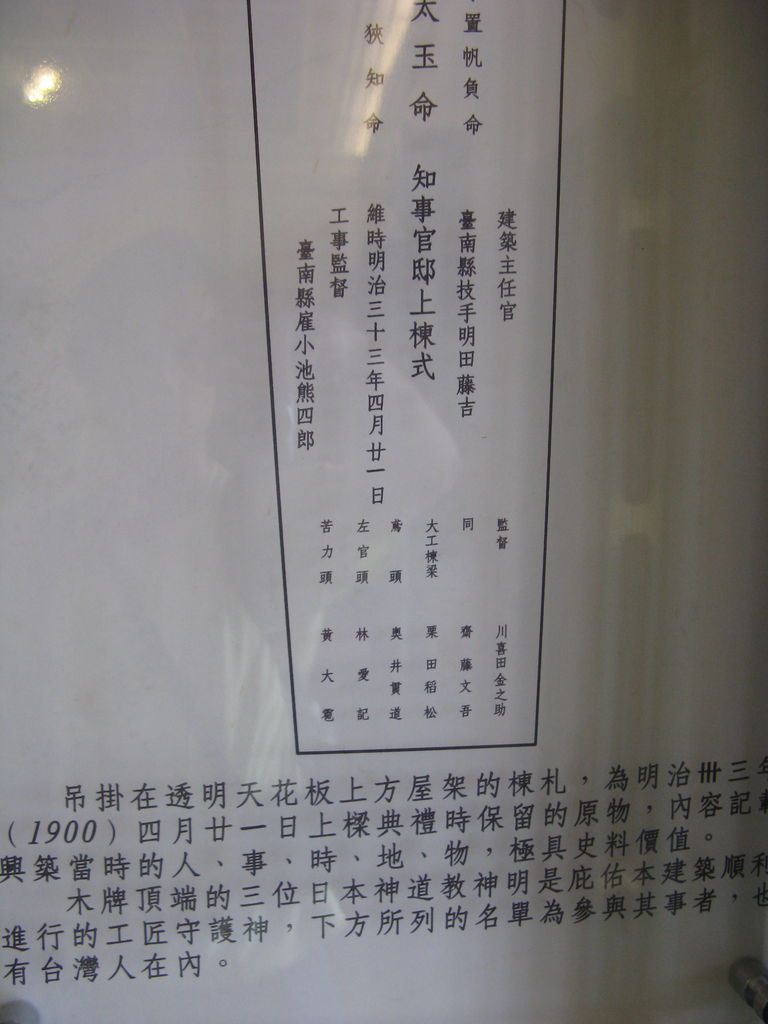 置帆負命
太玉命
狹知命
建築主任官
臺南縣技手明田藤吉
知事官邸上棟式
維時明治三十三年四月廿一日
工事監督
臺南縣雇小池熊四郎
監督 川喜田金之助
同 齋藤文吾
大工棟梁 栗田稻松
鳶頭 奧井貫道
左官頭 林愛記
苦力頭 黃大雹
吊掛在透明天花板上方屋架的棟札，為明治卅三年
（1900）四月廿一日上樑典禮時保留的原物，內容記載
興築當時的人、事、時、地、物，極具史料價值。
木牌頂端的三位日本神道教神明是庇佑本建築順利
進行的工匠守護神，下方所列的名單為參與其事者，也
有台灣人在內。